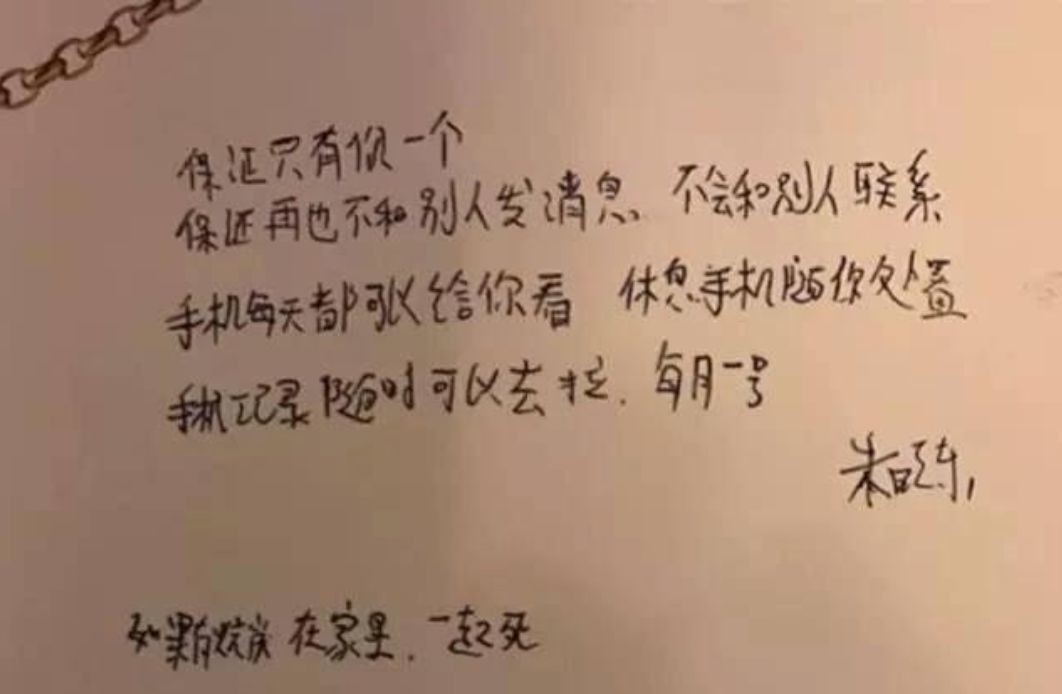 保证只有你一个
保证再也不和别人发消息 不会和别人联系
手机每天都可以给你看 休息手机随你处置
手机记录随时可以去拉．每月一号
朱晓东
如果有 在家里．一起死